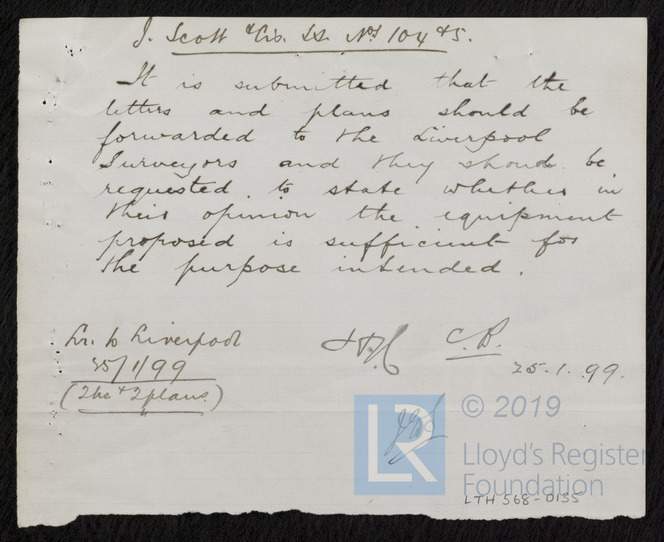 J. Scott & Co. Ld. Nos 104 & 5.
It is submitted that the
letters and plans should be
forwarded to the Liverpool
Surveyors and they should be
requested to state whether in
their opinion the equipment
proposed is sufficient for
the purpose intended.
Lr. to Liverpool
25/1/99
C.B.
25.1.99.
(2 & 2 plans)
LR
© 2019
Lloyd's Register
Foundation
LTH 568-0155